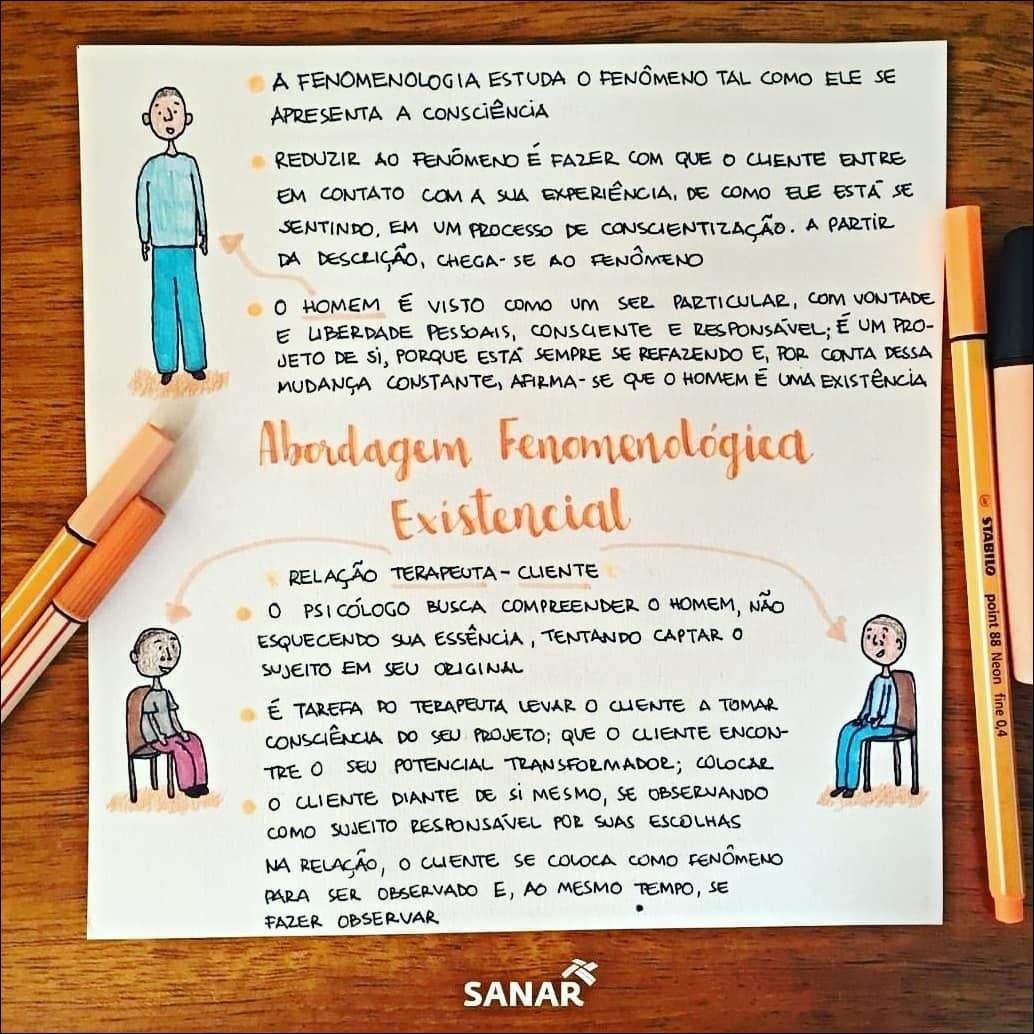 A FENOMENOLOGIA ESTUDA O FENÔMENO TAL COMO ELE SE
APRESENTA A CONSCIÊNCIA
REDUZIR AO FENÔMENO É FAZER COM QUE O CLIENTE ENTRE
EM CONTATO COM A SUA EXPERIÊNCIA, DE COMO ELE ESTÁ SE
SENTINDO, EM UM PROCESSO DE CONSCIENTIZAÇÃO. A PARTIR
DA DESCRIÇÃO, CHEGA-SE AO FENÔMENO
O HOMEM É VISTO COMO UM SER PARTICULAR, COM VONTADE
E LIBERDADE PESSOAIS, CONSCIENTE E RESPONSÁVEL; É UM PRO-
JETO DE SI, PORQUE ESTÁ SEMPRE SE REFAZENDO E, POR CONTA DESSA
MUDANÇA CONSTANTE, AFIRMA-SE QUE O HOMEM É UMA EXISTÊNCIA
Abordagem Fenomenológica
Existencial
RELAÇÃO TERAPEUTA-CLIENTE
O PSICÓLOGO BUSCA COMPREENDER O HOMEM, NÃO
ESQUECENDO SUA ESSÊNCIA, TENTANDO CAPTAR O
SUJEITO EM SEU ORIGINAL
É TAREFA DO TERAPEUTA LEVAR O CLIENTE A TOMAR
CONSCIÊNCIA DO SEU PROJETO; QUE O CLIENTE ENCON-
TRE O SEU POTENCIAL TRANSFORMADOR; COLOCAR
O CLIENTE DIANTE DE SI MESMO, SE OBSERVANDO
COMO SUJEITO RESPONSÁVEL POR SUAS ESCOLHAS
NA RELAÇÃO, O CLIENTE SE COLOCA COMO FENÔMENO
PARA SER OBSERVADO E, AO MESMO TEMPO, SE
FAZER OBSERVAR
STABILO point 88 Neon fine 0,4
SANAR